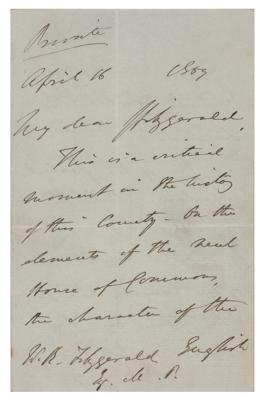 Private
April 16 1859
My dear Fitzgerald,
This is a critical
moment in the history
of this County - On the
elements of the next
House of Commons,
the character of the
W. R. Fitzgerald English
Esq. M. P.